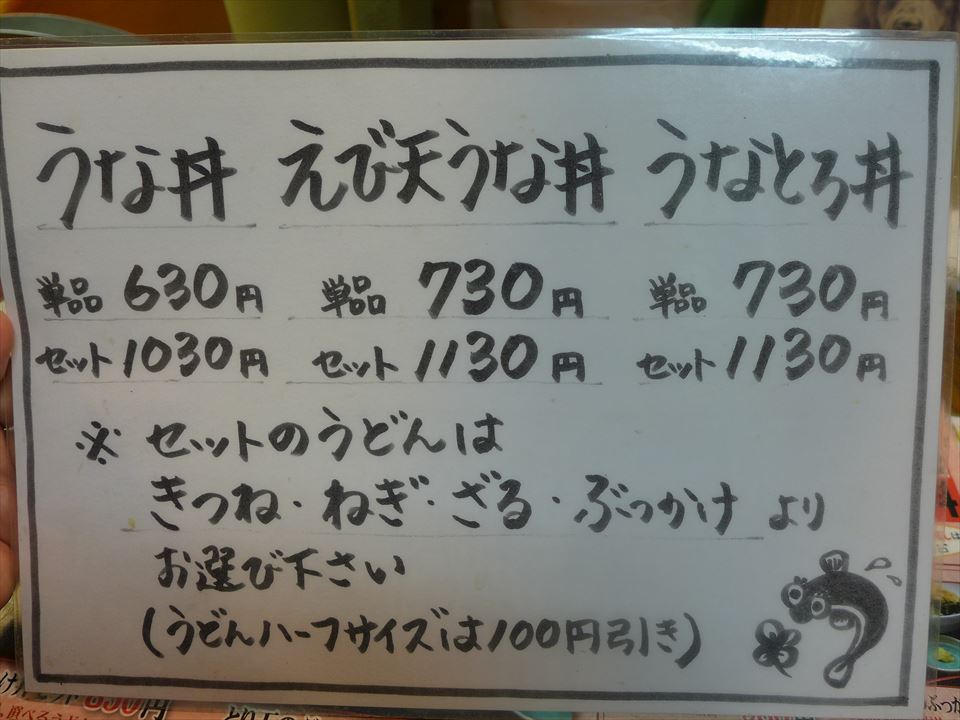 うな丼 えび天うな丼 うなとろ丼
単品 630円 単品 730円 単品 730円
セット 1030円 セット 1130円 セット 1130円
※ セットのうどんは
きつね・ねぎ・ざる・ぶっかけ より
お選び下さい
(うどんハーフサイズは100円引き)